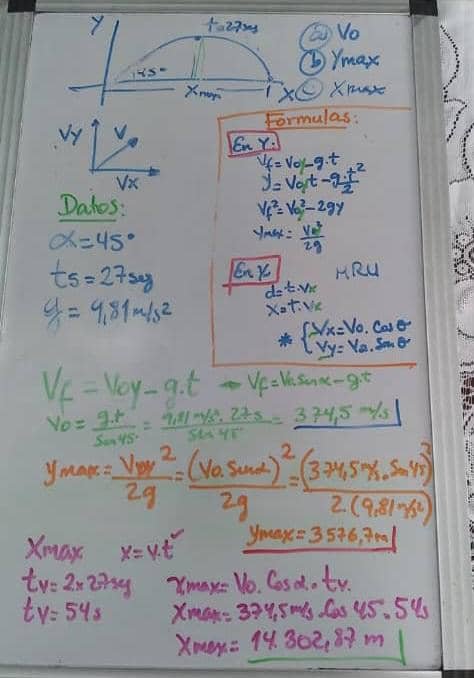 Y
t=27seg
45°
Xmax
X
a) Vo
b) Ymax
c) Xmax
Vy V
Vx
Formulas:
En Y:
Vf = Voy - g.t
Y = Voyt - g.t²/2
Vf² = Vo² - 2gy
Ymax = Vo²/2g
En X: MRU
d = t.Vx
X = t.Vx
* { Vx = Vo. Cos θ
Vy = Vo. Sen θ
Datos:
α = 45°
ts = 27seg
g = 9,81 m/s2
Vf = Voy - g.t → Vf = Vo.senα - g.t
Vo = g.t/Sen45° = 9,81 m/s². 27s/Sen 45° = 374,5 m/s
Ymax = Voy²/2g = (Vo. Senα)²/2g = (374,5 m/s. Sen 45)²/2.(9,81 m/s²)
Ymax = 3576,7m
Xmax x = v.t
tv = 2x27seg Xmax = Vo. Cos α. tv.
tv = 54s Xmax = 374,5 m/s. Cos 45. 54s
Xmax = 14.302,87 m